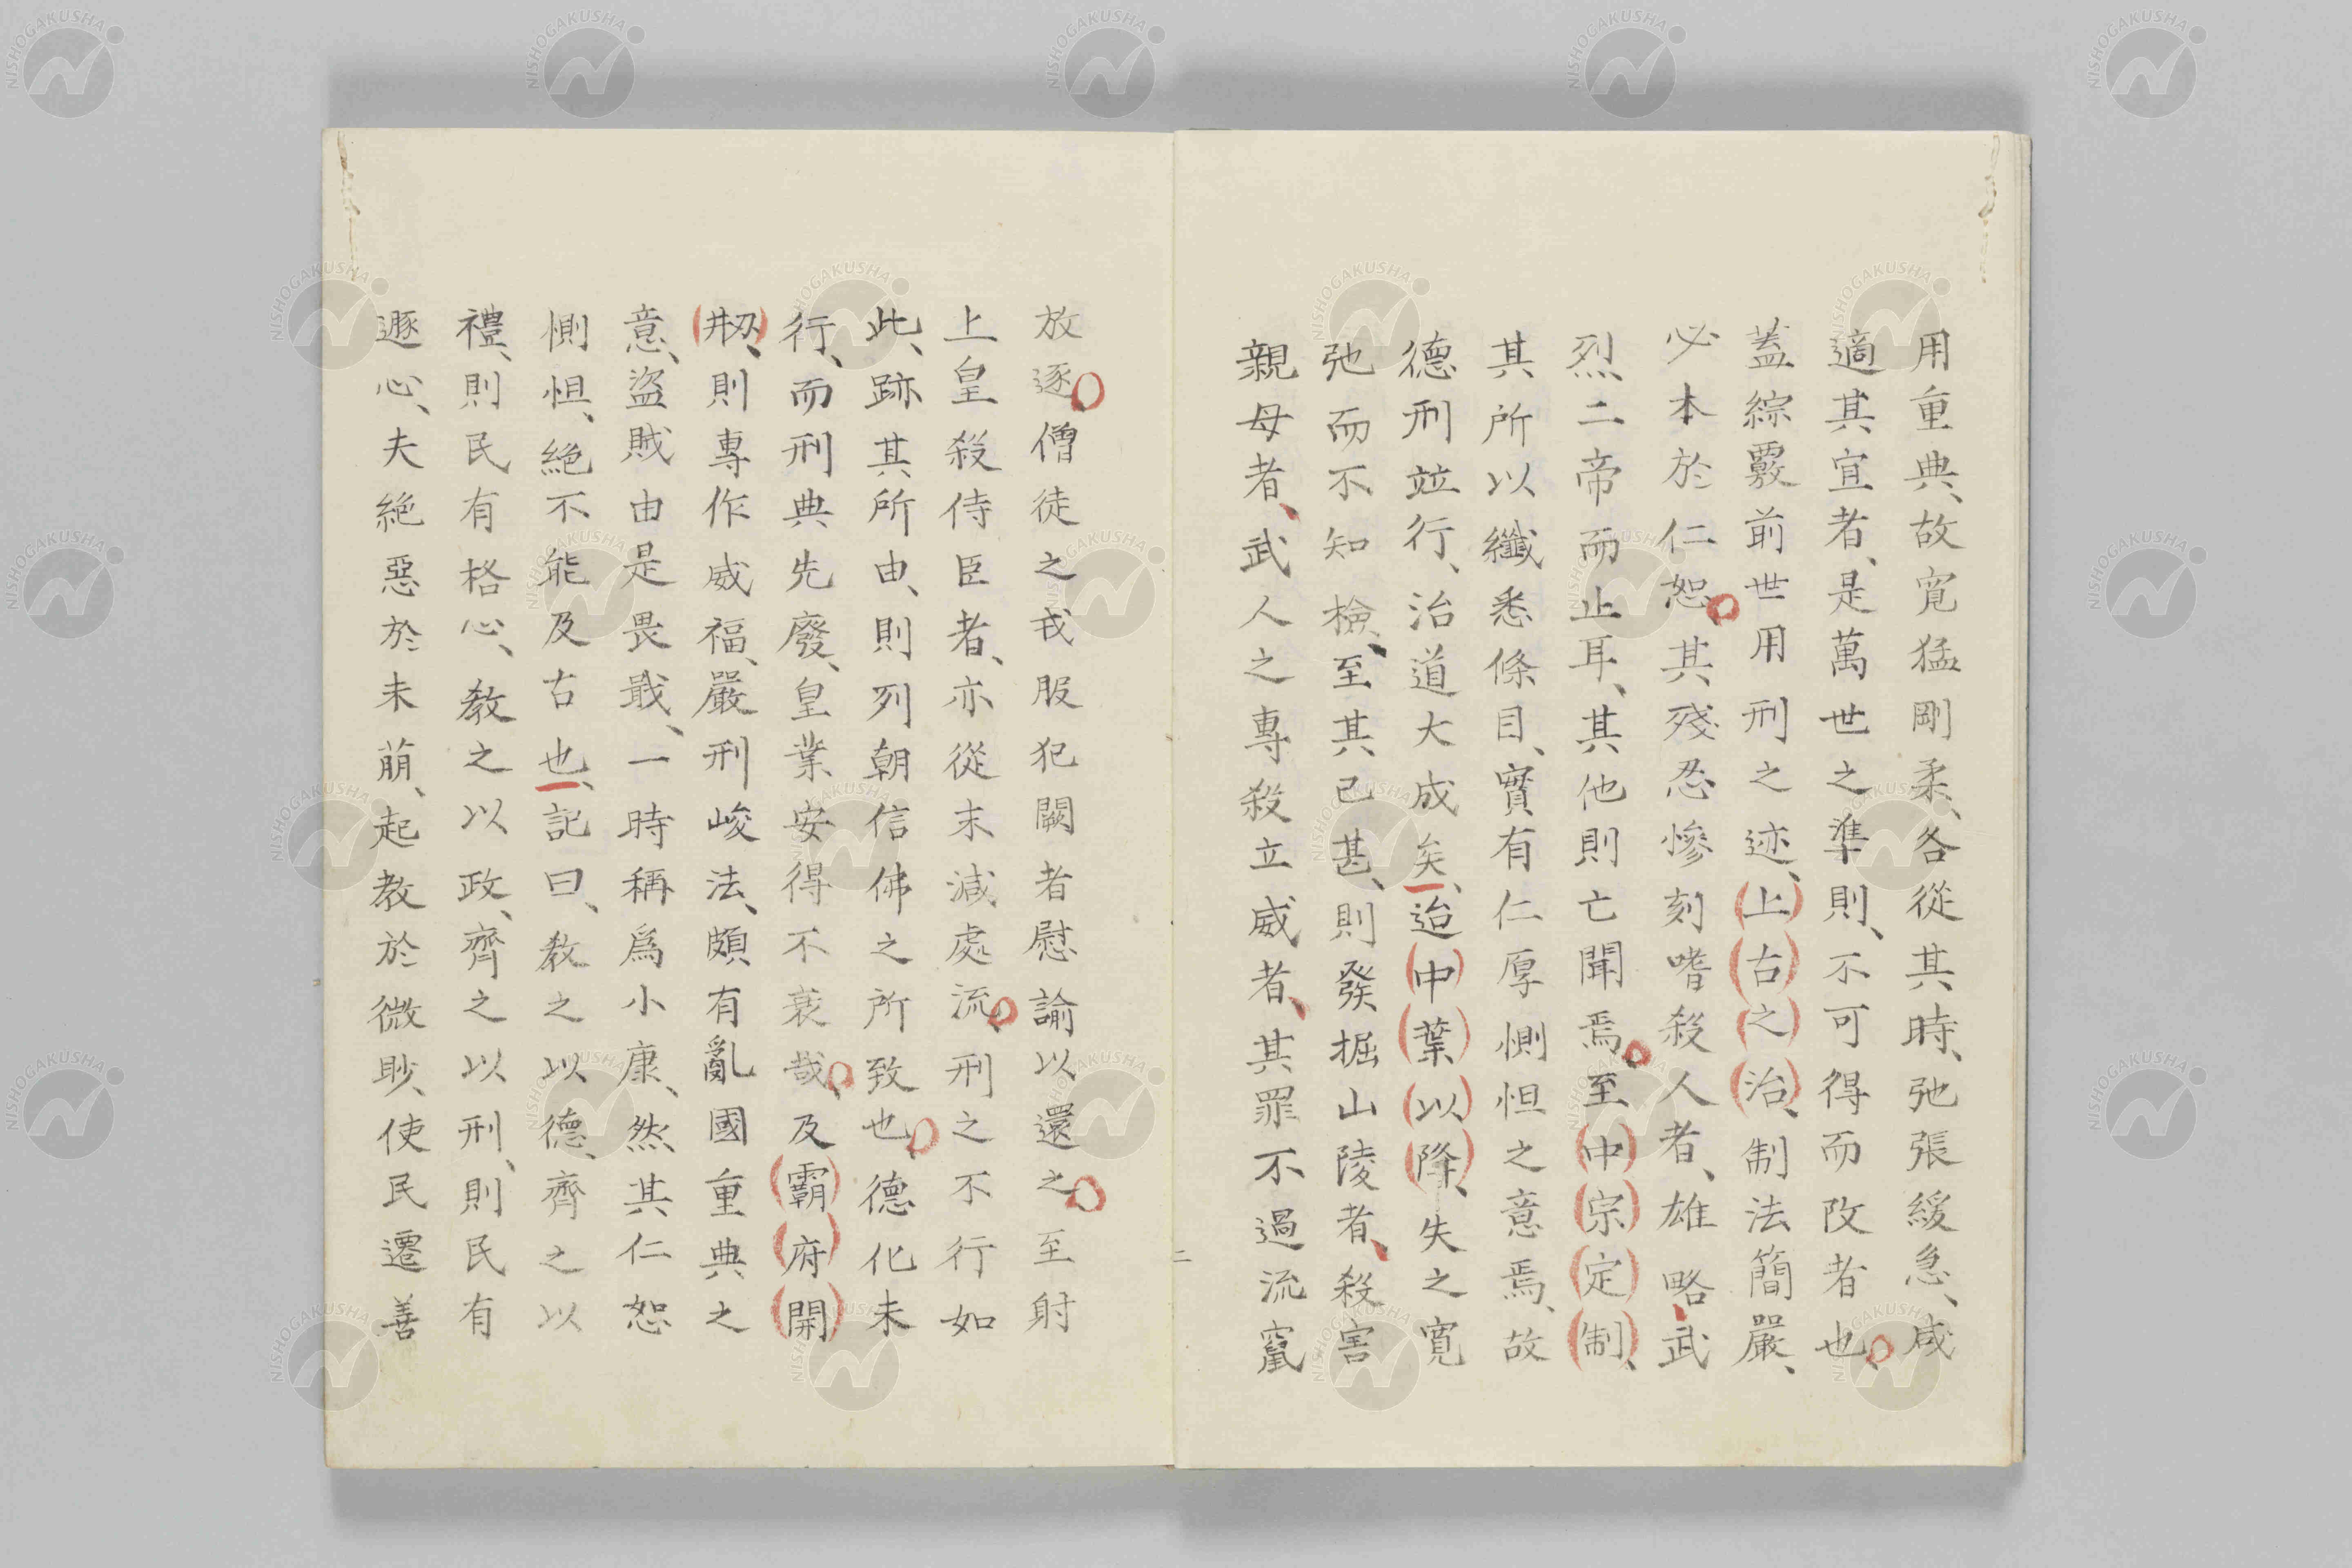 用重典、故寛猛剛柔、各從其時、弛張緩急、咸
適其宜者、是萬世之準則、不可得而改者也、
蓋綜覈前世用刑之迹、上古之治、制法簡嚴、
必本於仁恕、其殘忍慘刻嗜殺人者、雄略武
烈二帝而止耳、其他則亡聞焉、至中宗定制、
其所以纖悉條目、實有仁厚惻怛之意焉、故
德刑竝行、治道大成矣、迨中葉以降、失之寛
弛而不知檢、至其已甚、則發掘山陵者、殺害
親母者、武人之專殺立威者、其罪不過流竄
二
放逐、僧徒之戎服犯闕者慰諭以還之、至射
上皇殺侍臣者、亦從末減處流、刑之不行如
此、跡其所由、則列朝信佛之所致也、德化未
行、而刑典先廢、皇業安得不衰哉、及霸府開
刱、則專作威福、嚴刑峻法、頗有亂國重典之
意、盜賊由是畏戢、一時稱爲小康、然其仁恕
惻怛、絕不能及古也、記曰、教之以德、齊之以
禮、則民有格心、教之以政、齊之以刑、則民有
遯心、夫絕惡於未萠、起教於微眇、使民遷善
NISHOGAKUSHA